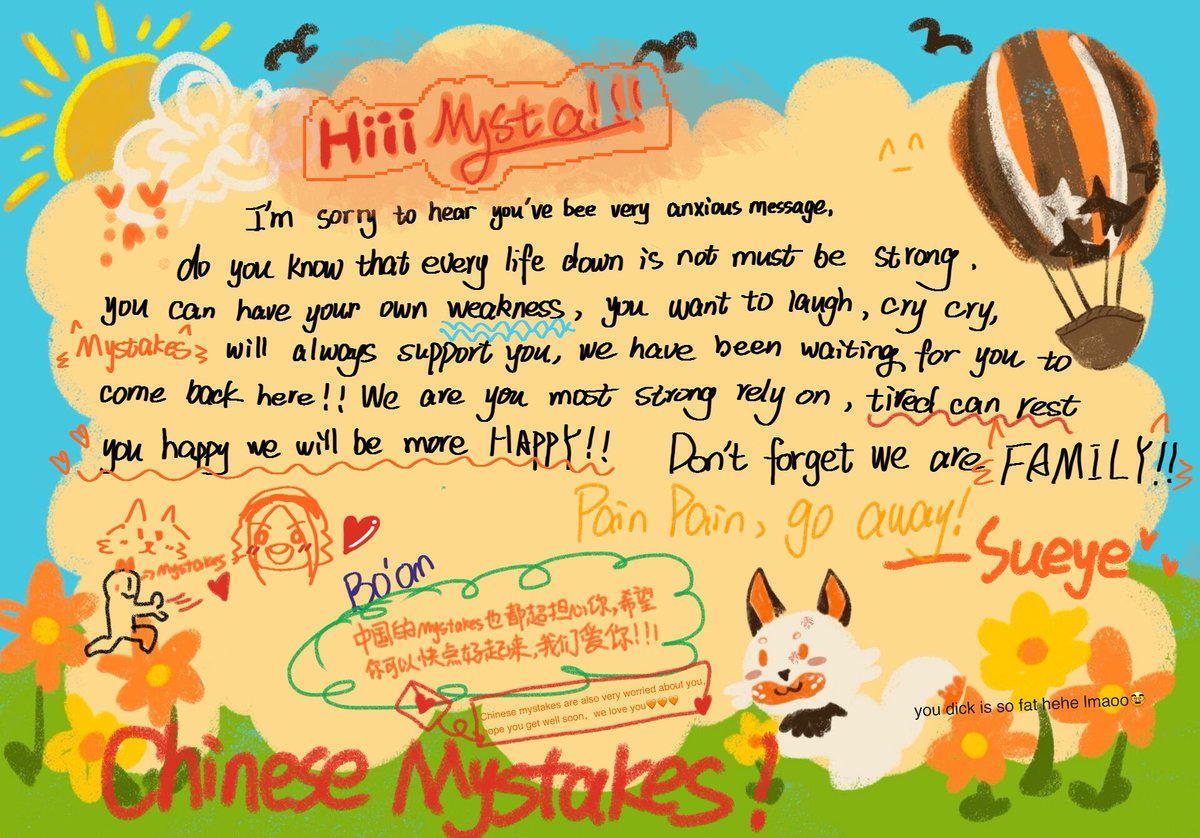 Hiii Mysta!!!
I'm sorry to hear you've bee very anxious message,
do you know that every life down is not must be strong.
you can have your own weakness, you want to laugh, cry cry,
Mystakes will always support you, we have been waiting for you to
come back here!! We are you most strong rely on, tired can rest
you happy we will be more HAPPY!! Don't forget we are FAMILY!!
Pain Pain, go away!
Sueye
mystakes
Bo'om
中国的mystakes也都超担心你,希望
你可以快点好起来,我们爱你!!!
Chinese mystakes are also very worried about you,
ope you get well soon, we love you🧡🧡🧡
you dick is so fat hehe lmaoo🥸
Chinese Mystakes!